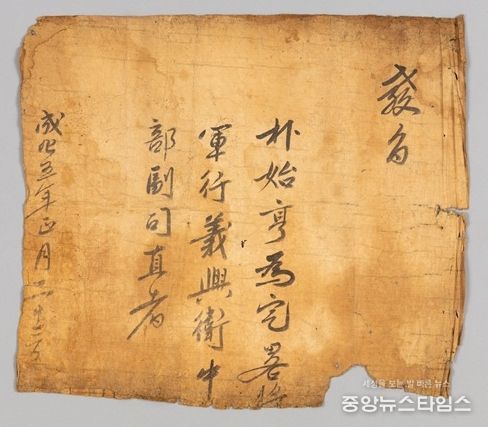 敎旨
朴始亨爲定畧將
軍行義興衛中
部副司直者
成化五年正月二十日
세상을 보는 발 빠른 뉴스
중앙뉴스타임스